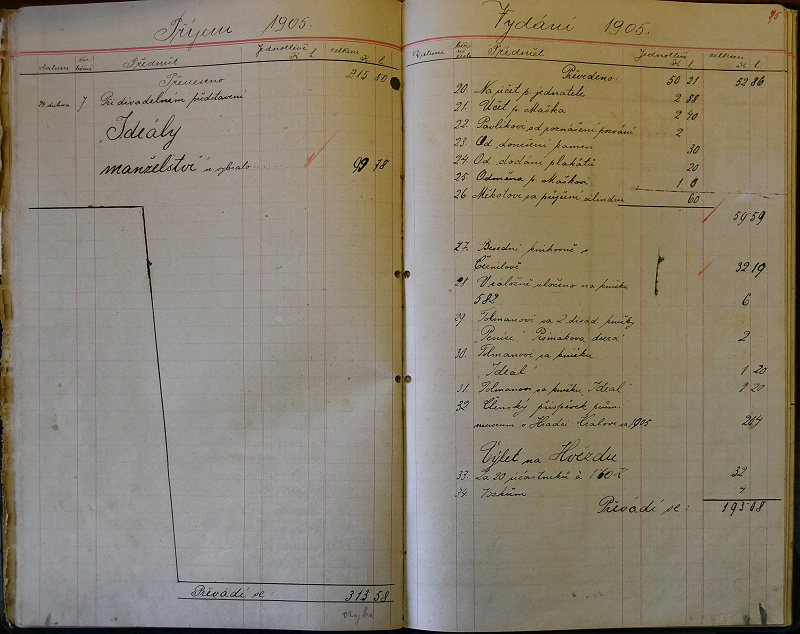 Příjem 1905.
datum Předmět Jednotlivě K h celkem K h
Přeneseno 215 80
7. Při divadelním představení
"Ideály
manželství" vybralo 99 78
Převádí se: 313 58
Vydání 1905.
Datum Předmět Jednotlivě K h celkem K h
Převedeno: 50 21 52 86
20. Na účet p. jednatele 2 88
21. Účet p. Maška 2 40
22. Pavlíkovi od roznášení pozvání 2
23. Od donesení kamen 30
24. Od dodání plakátů 20
25. Odměna p. Maškovi 1 0
26. Mikotovi za půjčení cilindru 60
59 59
27. Besední knihovně v
Černilově 32 19
28. V záložně uloženo na knížku
582 6
29. Tolmanovi za 2 divad. knížky
"Peníze" "Roznákova dcera" 2
30. Tolmanovi za knížku
"Ideal" 1 20
31. Tolmanovi za knížku "Ideal" 20
32 Členský příspěvek prům.
museum v Hradci Králové za 1905 204
Výlet na Hvězdu
33. Za 20 účastníků à 1 60 K 32
34.
Převádí se: 193 08